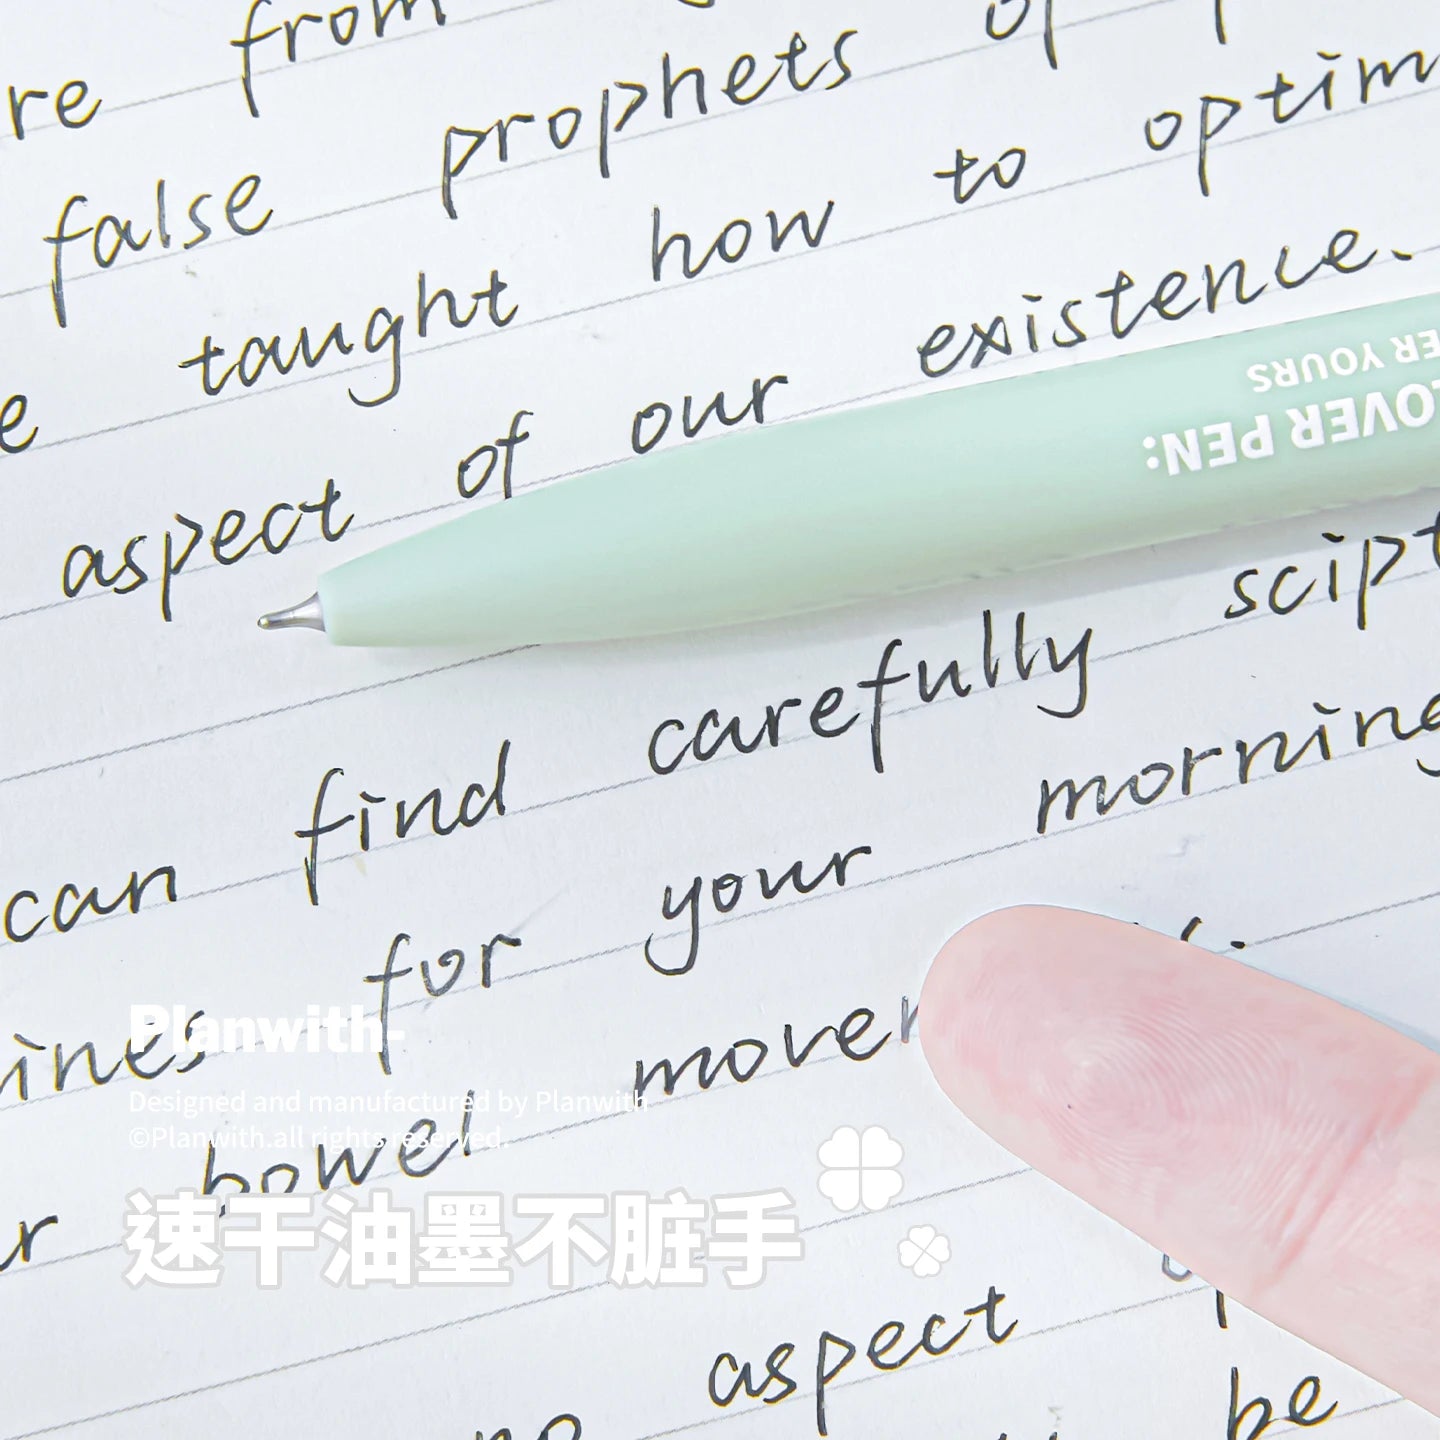 re from
false prophets of
taught how to optim
e aspect of our existence.
OVER PEN:
ER YOURS
can find carefully scipt
ines for your morning
r bowel mover
Planwith-
Designed and manufactured by Planwith
©Planwith.all rights reserved.
速干油墨不脏手
no aspect
be